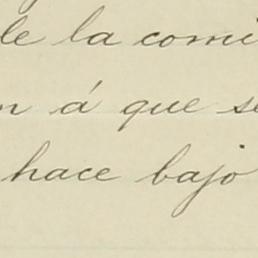 de la comi
n á que se
hace bajo